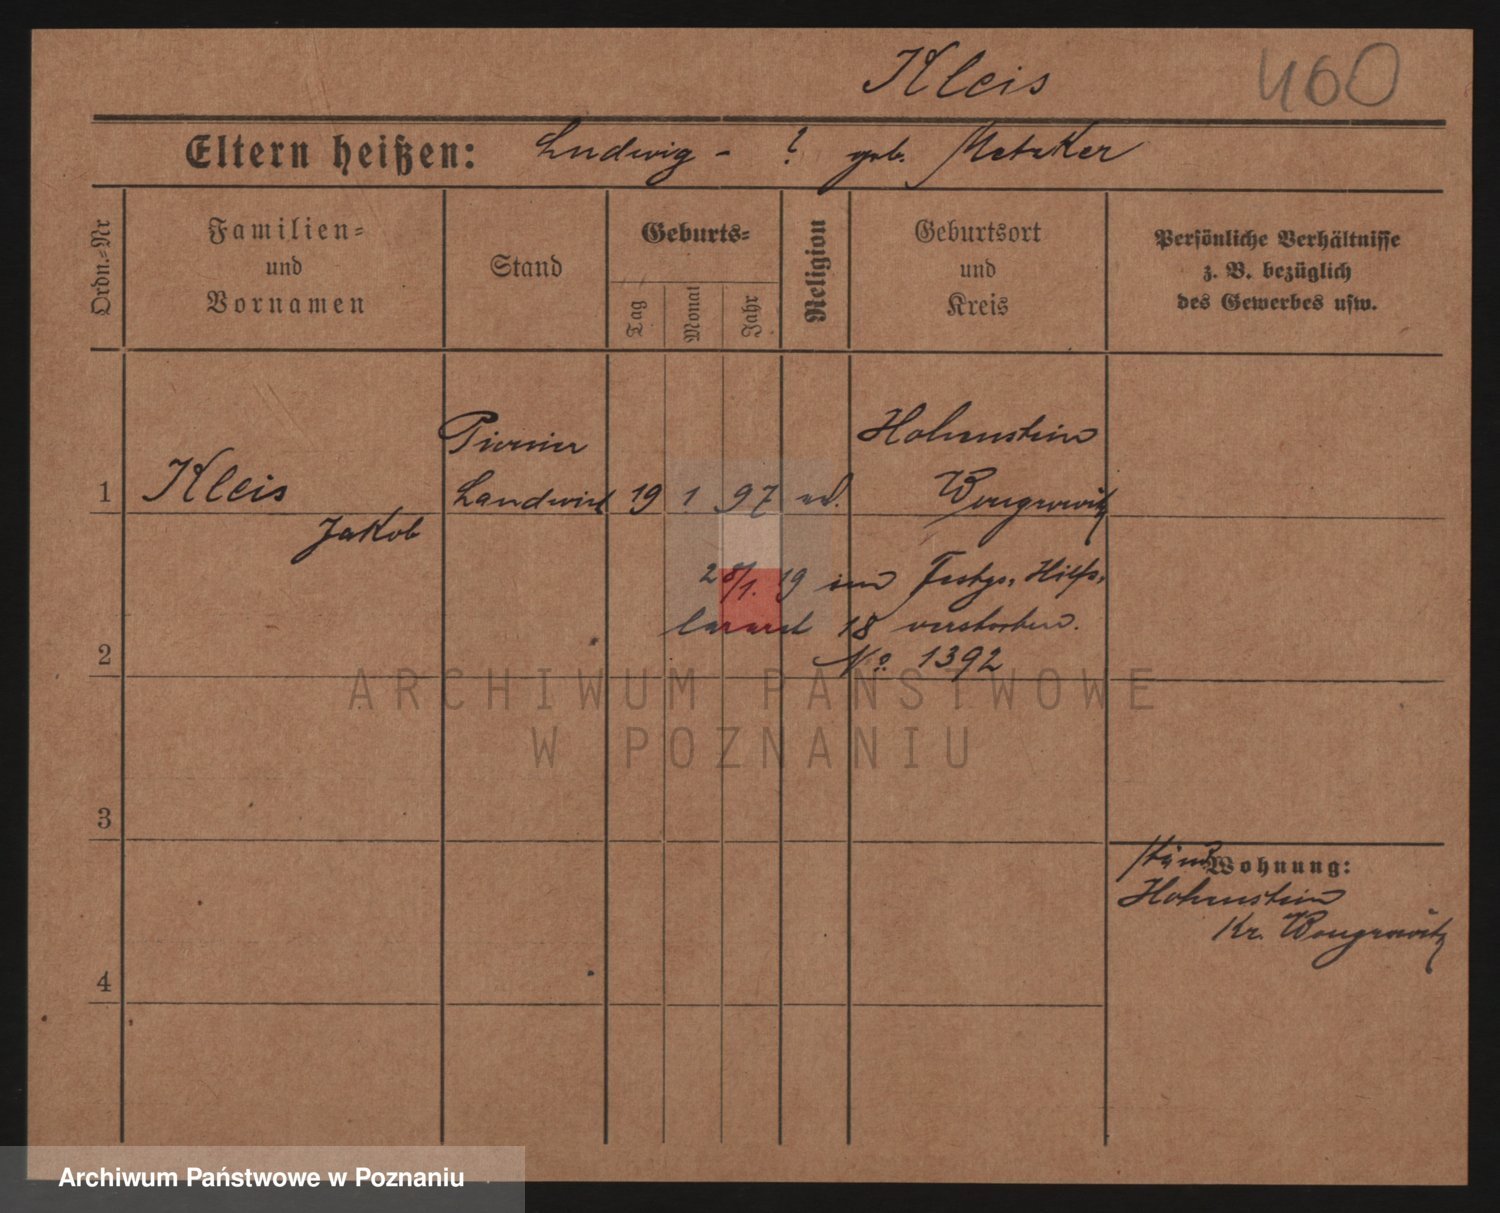 Kleis 460
Eltern heißen: Ludwig - ? geb. Metzker
Ordn.-Nr
Familien-
und
Vornamen
Stand
Geburts-
Tag
Monat
Jahr
Religion
Geburtsort
und
Kreis
Persönliche Verhältnisse
z. B. bezüglich
des Gewerbes usw.
Pionier Hohenstein
1 Kleis Landwirt 19 1 97 ev. Wongrowitz
Jakob
28/1. 19 im Festgs. Hilfs-
2 lazarett 18 verstorben.
No 1392
ARCHIWUM PAŃSTWOWE
W POZNANIU
3
Wohnung:
Hohenstein
Kr. Wongrowitz
4
Archiwum Państwowe w Poznaniu